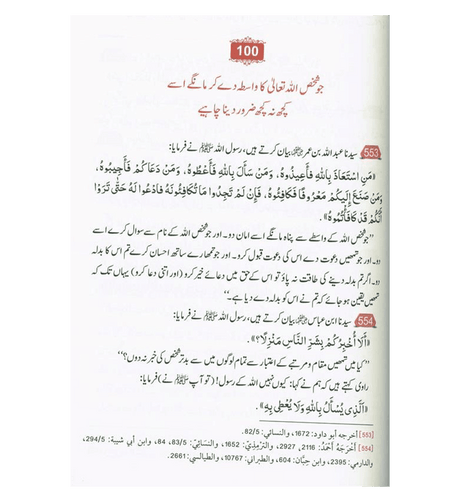 100
جو شخص اللہ تعالیٰ کا واسطہ دے کر مانگے اسے
کچھ نہ کچھ ضرور دینا چاہیے
553 سیدنا عبداللہ بن عمر رضی اللہ عنہما بیان کرتے ہیں، رسول اللہ ﷺ نے فرمایا:
«مَنِ اسْتَعَاذَ بِاللّٰهِ فَأَعِيذُوهُ، وَمَنْ سَأَلَ بِاللّٰهِ فَأَعْطُوهُ، وَمَنْ دَعَاكُمْ فَأَجِيبُوهُ،
وَمَنْ صَنَعَ إِلَيْكُمْ مَعْرُوفًا فَكَافِئُوهُ، فَإِنْ لَمْ تَجِدُوا مَا تُكَافِئُونَهُ فَادْعُوا لَهُ حَتَّى تَرَوْا
أَنَّكُمْ قَدْ كَافَأْتُمُوهُ».
’’جو شخص اللہ کے واسطے سے پناہ مانگے اسے امان دو۔ اور جو شخص اللہ کے نام سے سوال کرے اسے
دو۔ اور جو تمھیں دعوت دے اس کی دعوت قبول کرو۔ اور جو تمھارے ساتھ احسان کرے تم اس کا بدلہ
دو۔ اگر تم بدلہ دینے کی طاقت نہ پاؤ تو اس کے حق میں دعائے خیر کرو (اور اتنی دعا کرو) یہاں تک کہ
تمھیں یقین ہو جائے کہ تم نے اس کو بدلہ دے دیا ہے۔‘‘
554 سیدنا ابن عباس رضی اللہ عنہما بیان کرتے ہیں، رسول اللہ ﷺ نے فرمایا:
«أَلَا أُخْبِرُكُمْ بِشَرِّ النَّاسِ مَنْزِلًا؟».
’’کیا میں تمھیں مقام و مرتبے کے اعتبار سے تمام لوگوں میں سے بدتر شخص کی خبر نہ دوں؟‘‘
راوی کہتے ہیں کہ ہم نے کہا: کیوں نہیں اللہ کے رسول! (تو آپ ﷺ نے) فرمایا:
«الَّذِي يُسْأَلُ بِاللّٰهِ وَلَا يُعْطِي بِهِ».
[553] أخرجه أبو داود: 1672، والنسائي: 82/5.
[554] أخرجه أحمد: 2116، 2927، والترمذي: 1652، والنسائي: 83/5، 84، وابن أبي شيبة: 294/5،
والدارمي: 2395، وابن حبان: 604، والطبراني: 10767، والطيالسي: 2661.